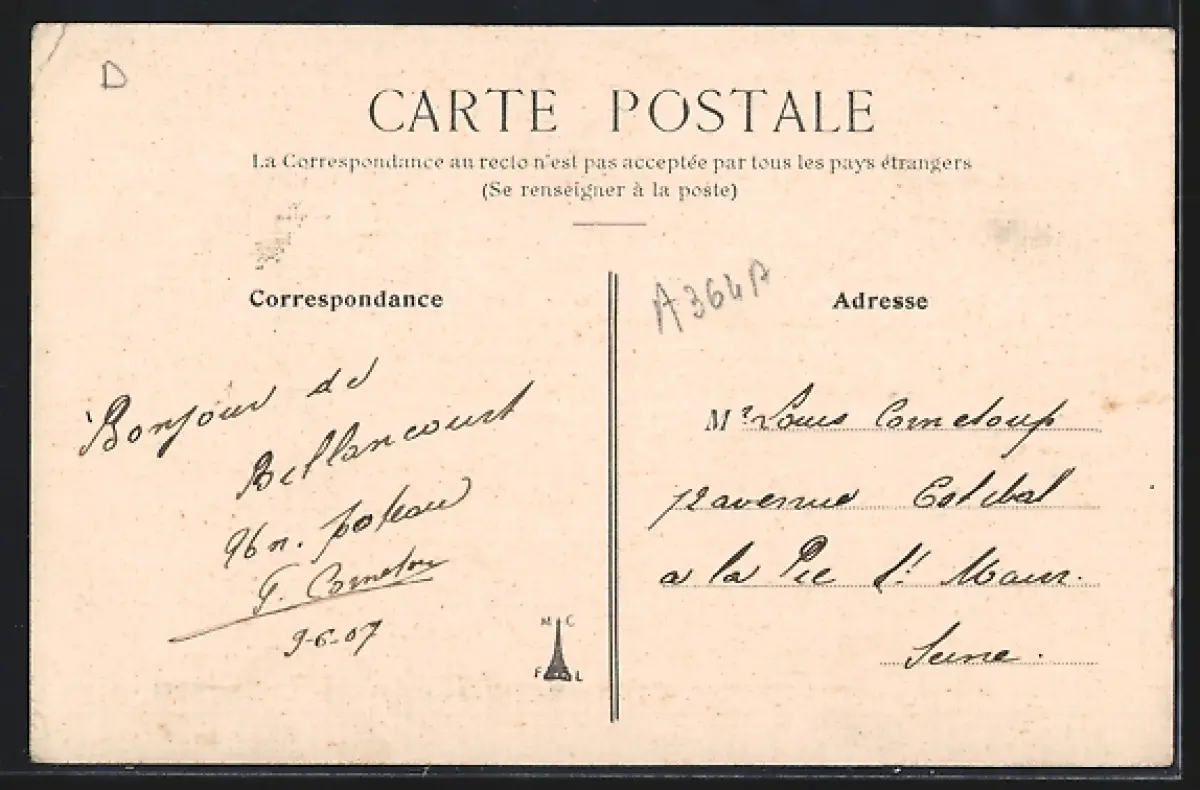 D
CARTE POSTALE
La Correspondance au recto n'est pas acceptée par tous les pays étrangers
(Se renseigner à la poste)
A364A
Correspondance
Bonjour de
Bellancourt
poteau
9-6-07
M C
F L
Adresse
Mr Louis Cometoup
12 avenue
a la Pie St Maur.
Seine.